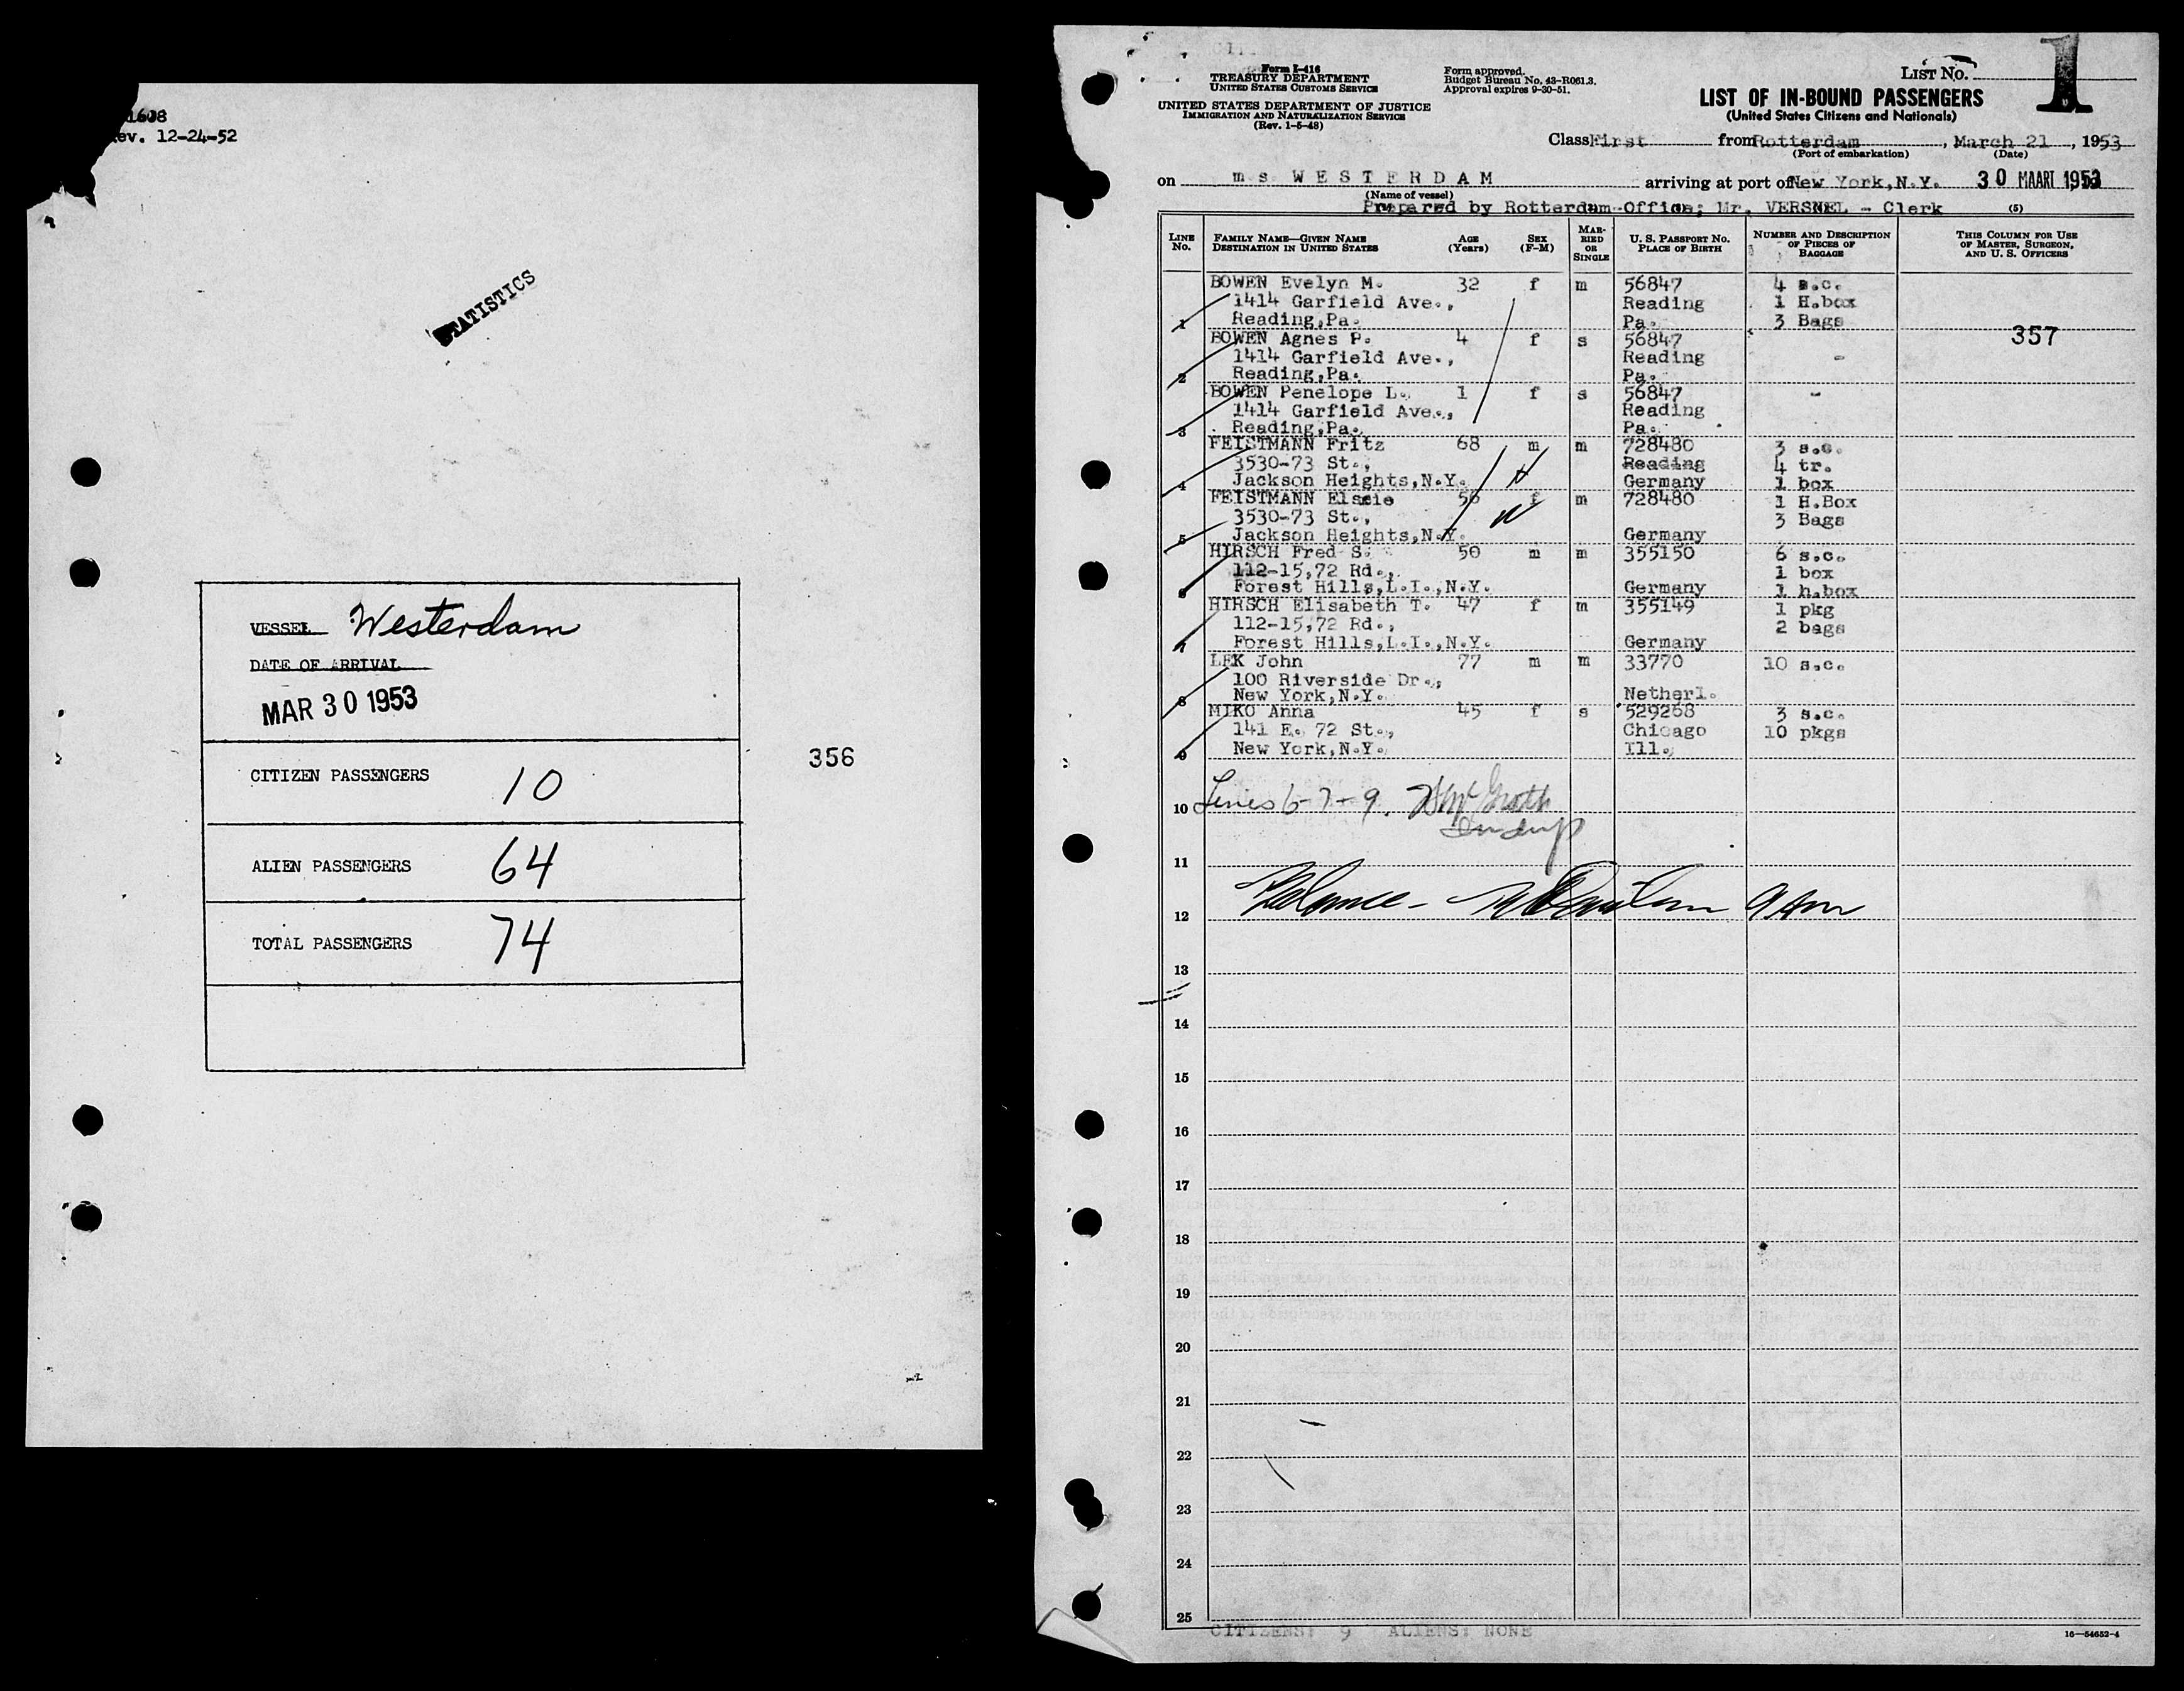 1608
ev. 12-24-52
STATISTICS
VESSEL Westerdam
DATE OF ARRIVAL
MAR 30 1953
CITIZEN PASSENGERS 10
ALIEN PASSENGERS 64
TOTAL PASSENGERS 74
356
Form I-416
TREASURY DEPARTMENT
UNITED STATES CUSTOMS SERVICE
UNITED STATES DEPARTMENT OF JUSTICE
IMMIGRATION AND NATURALIZATION SERVICE
(Rev. 1-5-48)
Form approved.
Budget Bureau No. 43-R061.3.
Approval expires 9-30-51.
LIST No. 1
LIST OF IN-BOUND PASSENGERS
(United States Citizens and Nationals)
Class First from Rotterdam, March 21, 1953
(Port of embarkation) (Date)
on m s WESTERDAM arriving at port of New York, N.Y. 30 MAART 1953
(Name of vessel)
Prepared by Rotterdam-Office; Mr. VERSNEL - Clerk (5)
LINE No. FAMILY NAME—GIVEN NAME DESTINATION IN UNITED STATES AGE (Years) SEX (F-M) MARRIED OR SINGLE U. S. PASSPORT No. PLACE OF BIRTH NUMBER AND DESCRIPTION OF PIECES OF BAGGAGE THIS COLUMN FOR USE OF MASTER, SURGEON, AND U. S. OFFICERS
BOWEN Evelyn M. 32 f m 56847 4 s.c.
1414 Garfield Ave., Reading 1 H.box
1 Reading,Pa. Pa. 3 Bags
357
BOWEN Agnes P. 4 f s 56847
1414 Garfield Ave., Reading -
2 Reading,Pa. Pa.
BOWEN Penelope L. 1 f s 56847 -
1414 Garfield Ave., Reading
3 Reading,Pa. Pa.
FEISTMANN Fritz 68 m m 728480 3 s.c.
3530-73 St., Reading 4 tr.
4 Jackson Heights,N.Y. Germany 1 box
FEISTMANN Elscie 56 f m 728480 1 H.Box
3530-73 St., 3 Bags
5 Jackson Heights,N.Y. Germany
HIRSCH Fred S. 50 m m 355150 6 s.c.
112-15,72 Rd., 1 box
6 Forest Hills,L.I.,N.Y. Germany 1 h.box
HIRSCH Elisabeth T. 47 f m 355149 1 pkg
112-15,72 Rd., 2 bags
7 Forest Hills,L.I.,N.Y. Germany
LEK John 77 m m 33770 10 s.c.
100 Riverside Dr.,
8 New York,N.Y. Netherl.
MIKO Anna 45 f s 529268 3 s.c.
141 E. 72 St., Chicago 10 pkgs
9 New York,N.Y. Ill.
10 Lines 6-7-9.
11
12
13
14
15
16
17
18
19
20
21
22
23
24
25
CITIZENS: 9 ALIENS: NONE
16—54652-4